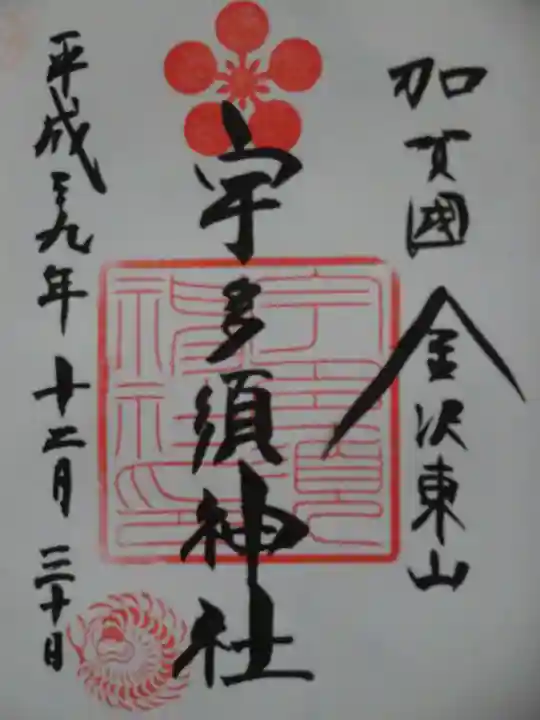 加賀國 金沢東山
宇多須神社
平成二十九年 十二月 三十日